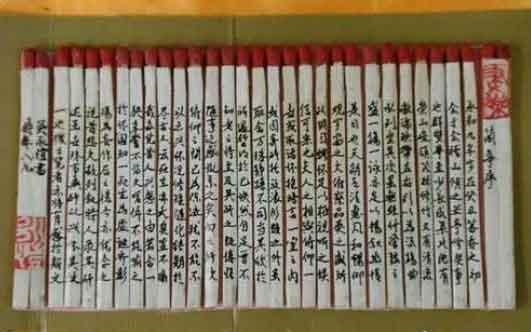 蘭亭序
永和九年歲在癸丑暮春之初
會于會稽山陰之蘭亭脩禊事
也羣賢畢至少長咸集此地有
崇山峻領茂林脩竹又有清流
激湍暎帶左右引以為流觴曲
水列坐其次雖無絲竹管弦之
盛一觴一詠亦足以暢敘幽情
是日也天朗氣清惠風和暢仰
觀宇宙之大俯察品類之盛所
以遊目騁懷足以極視聽之娛
信可樂也夫人之相與俯仰一
世或取諸懷抱悟言一室之內
或因寄所託放浪形骸之外雖
取舍萬殊靜躁不同當其欣於
所遇暫得於己快然自足不
知老之將至及其所之既惓情
隨事遷感慨係之矣向之所欣
俛仰之間已為陳跡猶不能不
以之興懷況脩短隨化終期於
盡古人云死生亦大矣豈不痛
哉每攬昔人興感之由若合一
契未嘗不臨文嗟悼不能喻之
於懷固知一死生為虛誕齊彭
殤為妄作後之視今亦由今之
視昔悲夫故列敘時人錄其所
述雖世殊事異所以興懷其致
一也後之攬者亦將有感於斯文